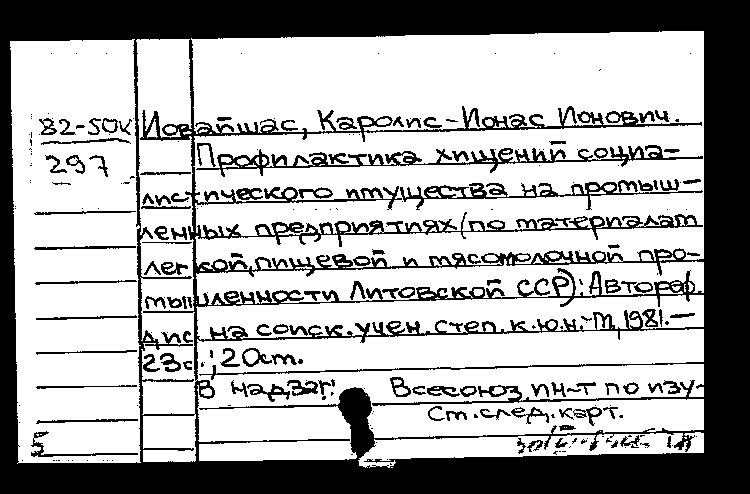 82-50к Иовайшас, Каролис-Ионас Ионович.
297 Профилактика хищений социа-
листического имущества на промыш-
ленных предприятиях (по материалам
легкой, пищевой и мясомолочной про-
мышленности Литовской ССР): Автореф.
дис. на соиск. учен. степ. к.ю.н. - М, 1981. -
23с.; 20см.
В надзаг: Всесоюз. ин-т по изу-
См. след. карт.
5